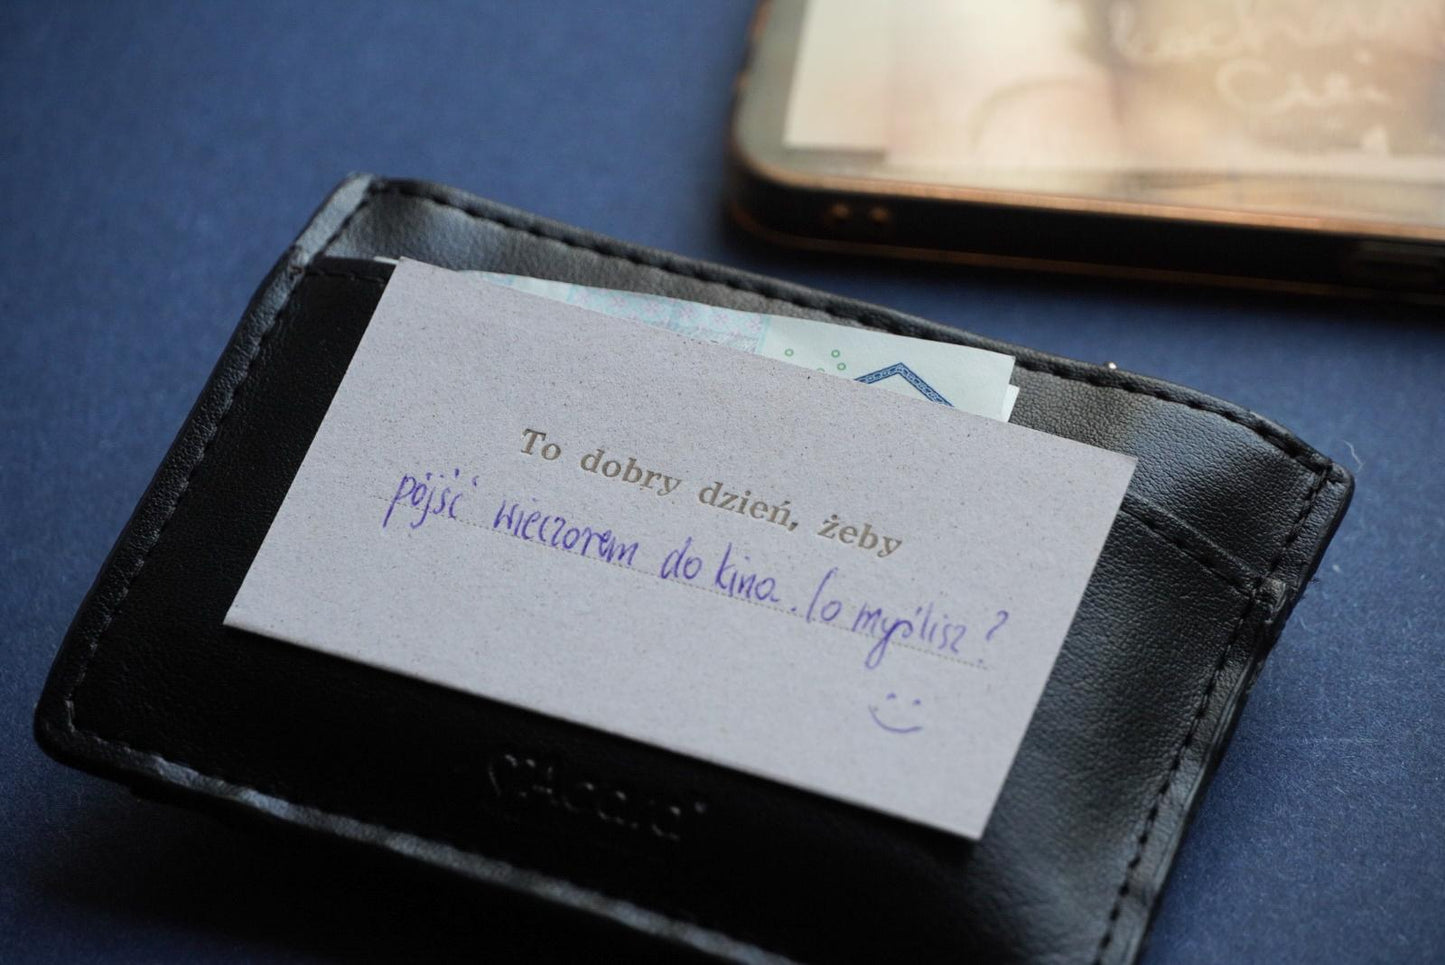 To dobry dzień, żeby
pójść wieczorem do kina. Co myślisz?